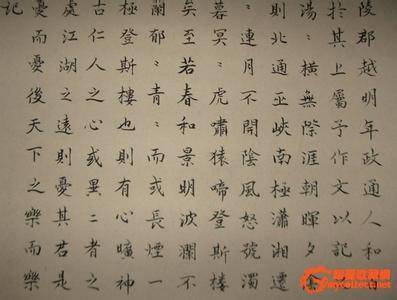 陵郡越明年政通人和
於其上屬予作文以記
湯〻橫無際涯朝暉夕
則北通巫峽南極瀟湘遷
〻連月不開陰風怒號濁
暮冥〻虎嘯猿啼登斯樓
矣至若春和景明波瀾不
蘭郁〻青〻而或長煙一
極登斯樓也則有心曠神
古仁人之心或異二者之
處江湖之遠則憂其君是
憂而憂後天下之樂而樂
記
mycollect.net